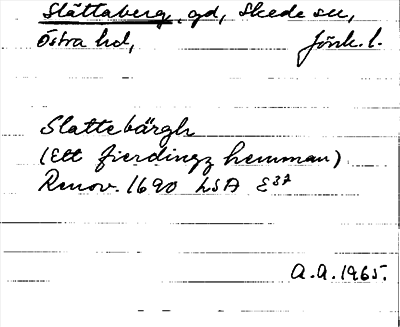 Slättaberg, gd, Skede sn,
Östra hd, Jönk. l.
Slattebärgh
(Ett fierdingz hemman)
Renov. 1690 LSA E37
A.A. 1965.